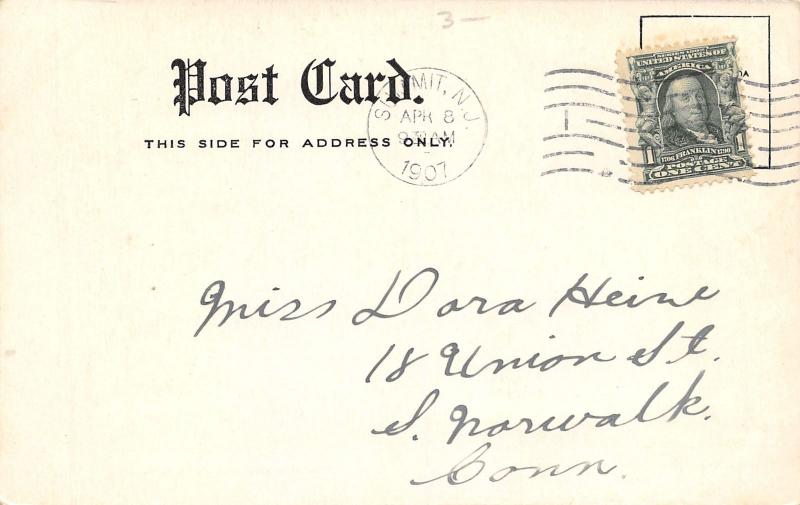 3–
Post Card.
THIS SIDE FOR ADDRESS ONLY.
SUMMIT, N.J.
APR 8
930 AM
1907
SERIES 1902
UNITED STATES OF
AMERICA
1706 FRANKLIN 1790
1 POSTAGE 1
ONE CENT
Miss Dora Heine
18 Union St.
S. Norwalk.
Conn.